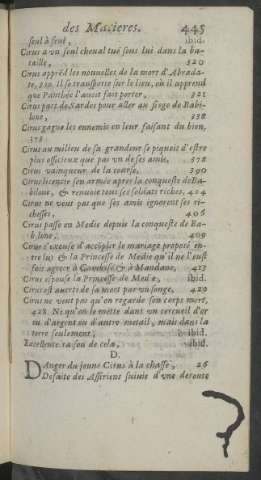 des Matieres. 445
seul à seul, ibid.
Cirus a vn seul cheual tué sous lui dans la ba-
taille, 320
Cirus apprẽd les nouuelles de la mort d'Abrada-
te, 320. Il se transporte sur le lieu, où il apprend
que Panthée l'auoit fait porter, 321
Cirus part de Sardes pour aller au siege de Babi-
lone, 338
Cirus gagne les ennemis en leur faisant du bien,
373
Cirus au milieu de sa grandeur se piquoit d'estre
plus officieux que pas vn de ses amis, 378
Cirus vainqueur de la 390
Cirus licentie son armée apres la conqueste de Ba-
bilone, & renuoie tous ses soldats riches, 404
Cirus ne veut pas que ses amis ignorent ses ri-
chesses, 406
Cirus passe en Medie depuis la conqueste de Ba-
bilone, 409
Cirus s'excuse d'accepter le mariage proposé en-
tre lui & la Princesse de Medie qu'il ne l'eust
fait agréer à Cambise & à Mandane, 427
Cirus épouse la Princesse de Medie, ibid.
Cirus est auerti de sa mort par vn songe, 420
Cirus ne veut pas qu'on regarde son corps mort,
428. Ni qu'on le mette dans vn cercueil d'or
ni d'argent ou d'autre metail, mais dans la
terre seulement, ibid.
Excellente raison de cela, ibid.
D.
DAnger du jeune Cirus à la chasse, 26
Défaite des Assiriens suiuie d'vne deroute